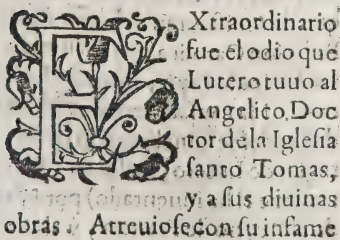 EXtraordinario
fue el odio que
Lutero tuuo al
Angelico Doc
tor de la Iglesia
santo Tomas,
y a sus diuinas
obras. Atreuiose con su infame